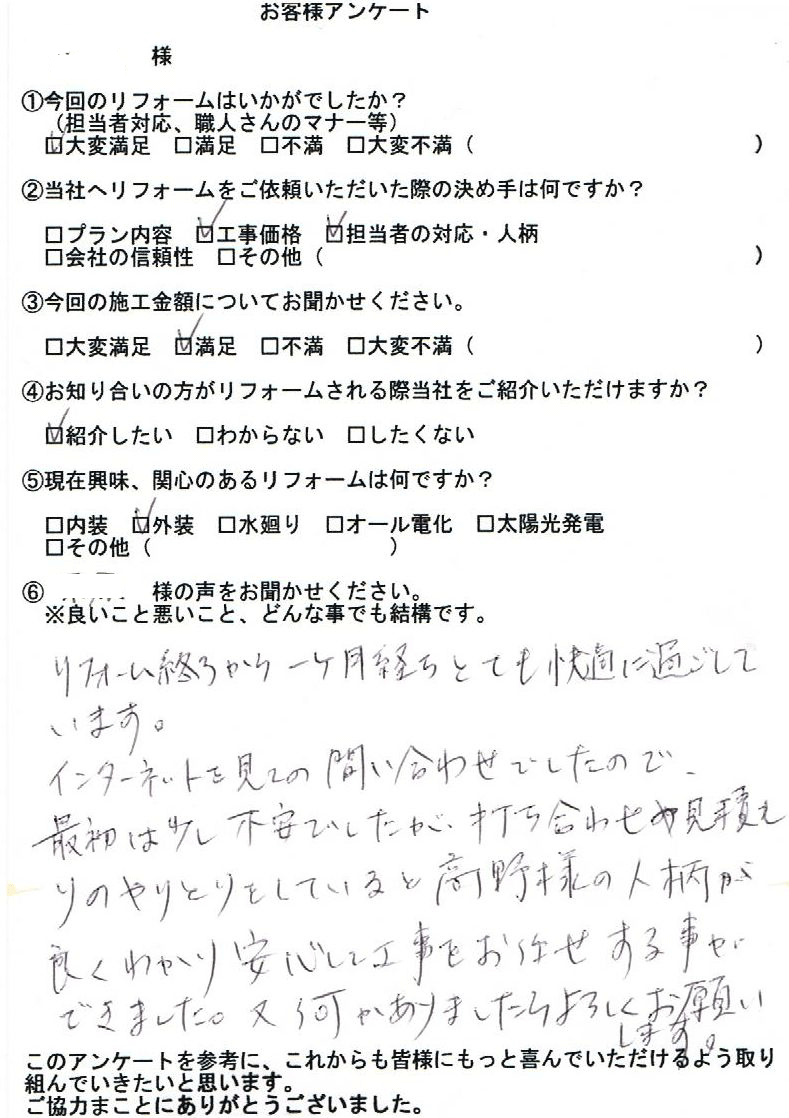 お客様アンケート
様
①今回のリフォームはいかがでしたか？
（担当者対応、職人さんのマナー等）
☑大変満足 □満足 □不満 □大変不満（ ）
②当社へリフォームをご依頼いただいた際の決め手は何ですか？
□プラン内容 ☑工事価格 ☑担当者の対応・人柄
□会社の信頼性 □その他（ ）
③今回の施工金額についてお聞かせください。
□大変満足 ☑満足 □不満 □大変不満（ ）
④お知り合いの方がリフォームされる際当社をご紹介いただけますか？
☑紹介したい □わからない □したくない
⑤現在興味、関心のあるリフォームは何ですか？
□内装 ☑外装 □水廻り □オール電化 □太陽光発電
□その他（ ）
⑥ 様の声をお聞かせください。
※良いこと悪いこと、どんな事でも結構です。
リフォーム終ろから一ヶ月経ちとても快適に過ごして
います。
インターネットを見ての問い合わせでしたので、
最初は少し不安でしたが、打ち合わせや見積も
りのやりとりをしていると高野様の人柄が
良くわかり安心して工事をお任せする事が
できました。又何かありましたらよろしくお願い
します。
このアンケートを参考に、これからも皆様にもっと喜んでいただけるよう取り
組んでいきたいと思います。
ご協力まことにありがとうございました。